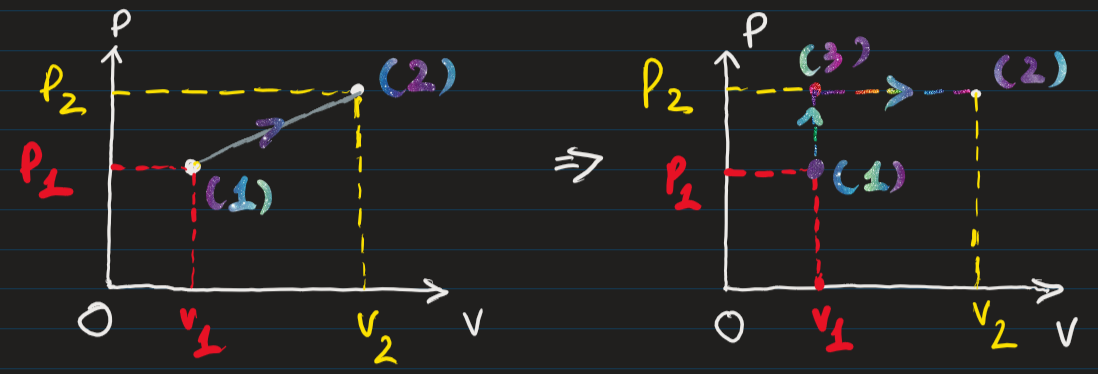 P
P₂
(2)
P₁
(1)
O
V₁
V₂
V
⇒
P
(3)
(2)
P₂
P₁
(1)
O
V₁
V₂
V